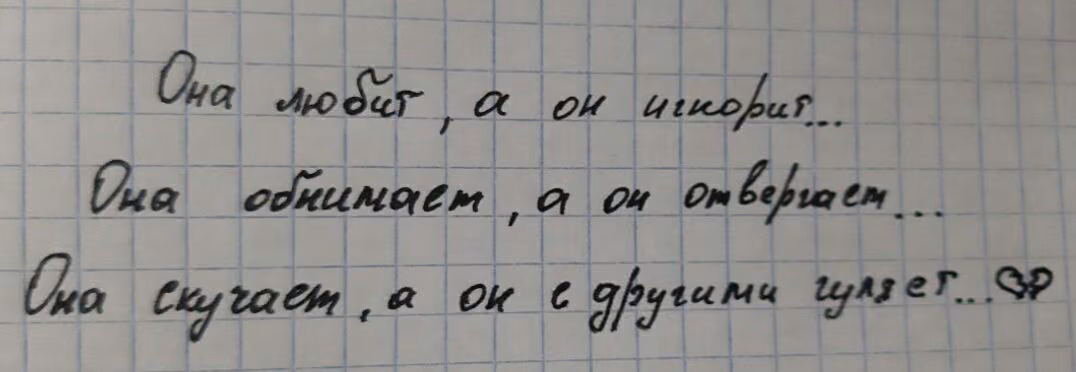 Она любит, а он игнорит...
Она обнимает, а он отвергает...
Она скучает, а он с другими гуляет...